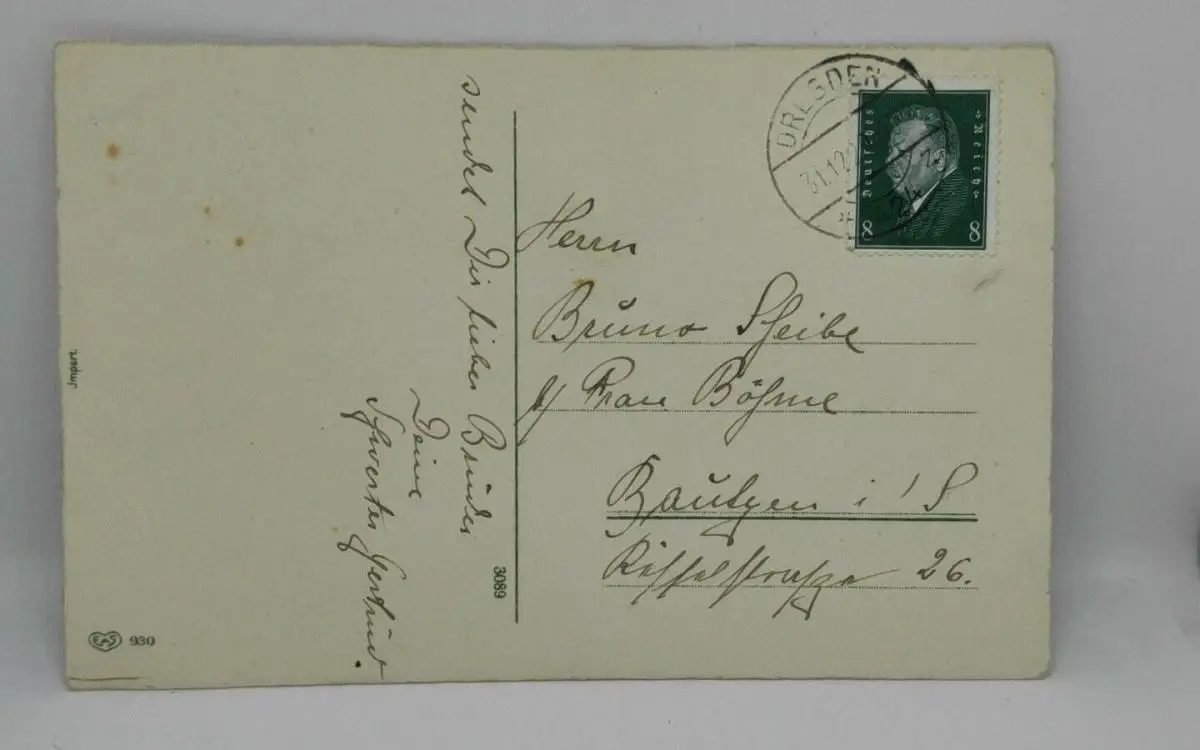 sendet Dir lieber Bruder
Deine
Schwester Gertrud.
3089
Import.
EAS 930
DRESDEN
31.12.
24
Deutsches Reich
8 8
Herrn
Bruno Scheibe
b/ Frau Böhme
Bautzen i/S
26.